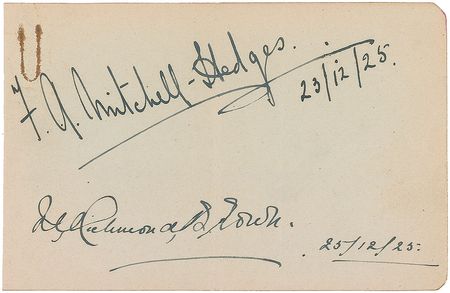 F. A. Mitchell-Hedges.
23/12/25.
Richmond Brown.
25/12/25.